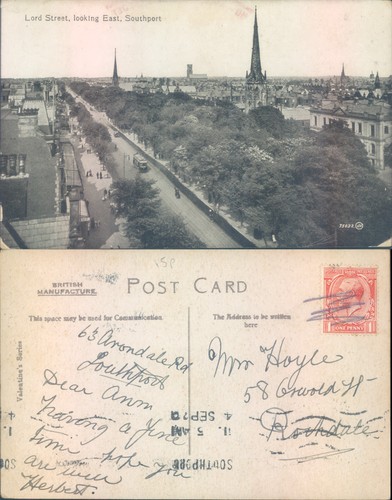 Lord Street, looking East, Southport
POST CARD
BRITISH
MANUFACTURE.
This space may be used for Communication.
The Address to be written
here
Valentine's Series
63 Avondale Rd
Southport
Dear Ann
Having a fine
time hope you
are well
Herbert.
Mrs Hoyle
58 Oswold St
Rochdale
ONE PENNY
SOUTHPORT
4 SEP